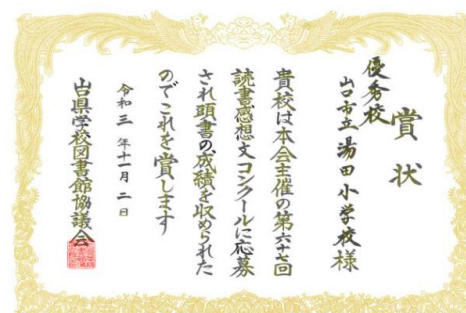 賞状
優秀校
山口市立湯田小学校様
貴校は本会主催の第六十七回
読書感想文コンクールに応募
され頭書の成績を収められた
のでこれを賞します
令和三年十一月二日
山口県学校図書館協議会